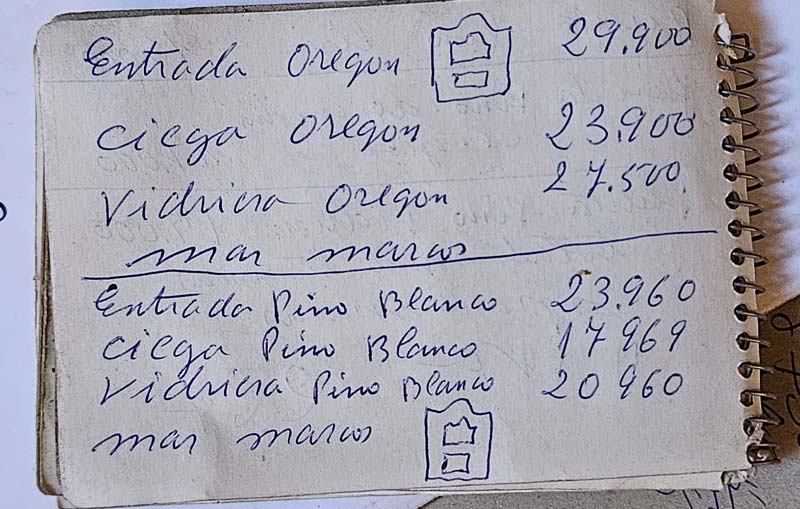 Entrada Oregon 29.900
ciega Oregon 23.900
Vidriera Oregon 27.500
mas marcos
Entrada Pino Blanco 23.960
ciega Pino Blanco 17969
Vidriera Pino Blanco 20960
mas marcos